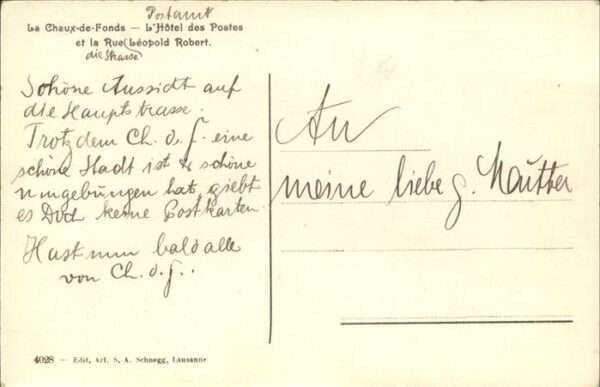 Postamt
La Chaux-de-Fonds — L'Hôtel des Postes
et la Rue Léopold Robert.
die Strasse
Schöne Aussicht auf
die Hauptstrasse.
Trotzdem Ch. d. f. eine
schöne Stadt ist & schöne
Umgebungen hat, giebt
es Doch keine Postkarten
Hast nun bald alle
von Ch. d. f..
An
meine liebe g. Mutter
4028 — Edit. Art. S. A. Schnegg, Lausanne